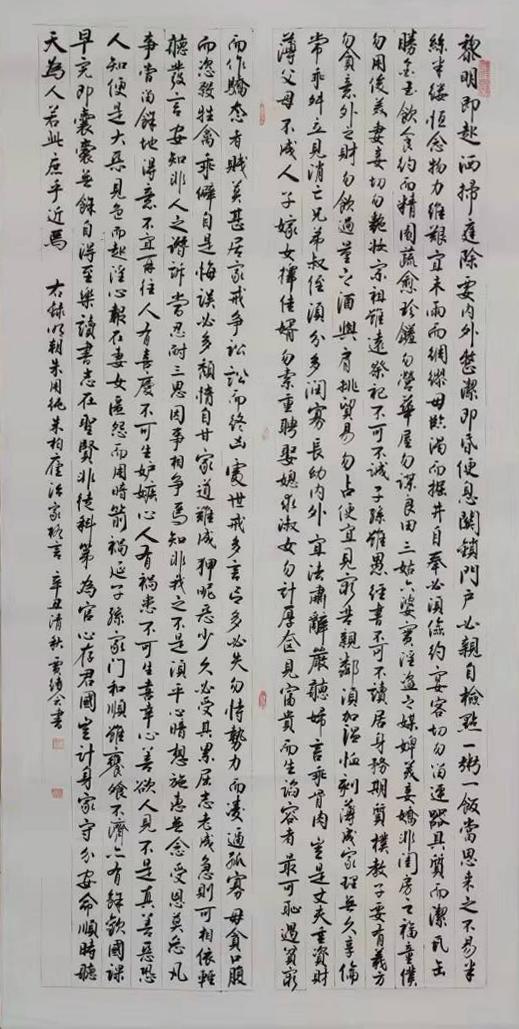 黎明即起洒掃庭除要内外整潔即昏便息關鎖門户必親自檢點一粥一飯當思来之不易半
絲半縷恒念物力維艱宜未雨而綢繆毋臨渴而掘井自奉必須儉約宴客切勿留連器具質而潔瓦缶
勝金玉飲食約而精園蔬愈珍饈勿營華屋勿謀良田三姑六婆實淫盗之媒婢美妾嬌非閨房之福童僕
勿用俊美妻妾切勿艷妝宗祖雖遠祭祀不可不誠子孫雖愚经書不可不讀居身務期質樸教子要有義方
勿貪意外之財勿飲過量之酒與肩挑貿易勿占便宜見窮苦親鄰須加温恤刻薄成家理無久享倫
常乖舛立見消亡兄弟叔侄須分多润寡長幼内外宜法肅辭嚴聽婦言乖骨肉豈是丈夫重資財
薄父母不成人子嫁女擇佳婿勿索重聘娶媳求淑女勿計厚奩見富貴而生谄容者最可恥遇貧窮
而作驕态者賤莫甚居家戒争訟訟而终凶處世戒多言言多必失勿恃勢力而凌逼孤寡毋貪口腹
而恣殺牲禽乖僻自是悔誤必多颓惰自甘家道難成狎昵惡少久必受其累屈志老成急則可相依輕
聽發言安知非人之譖訴當忍耐三思因事相争焉知非我之不是須平心暗想施惠無念受恩莫忘凡
事當留餘地得意不宜再往人有喜慶不可生妒嫉心人有禍患不可生喜幸心善欲人見不是真善惡恐
人知便是大惡見色而起淫心報在妻女匿怨而用暗箭禍延子孫家門和順雖饔飧不濟亦有餘歡國課
早完即囊橐無餘自得至樂讀書志在聖賢非徒科第為官心存君國豈計身家守分安命順時聽
天為人若此庶乎近焉
右録明朝朱用純朱柏廬治家格言 辛丑清秋